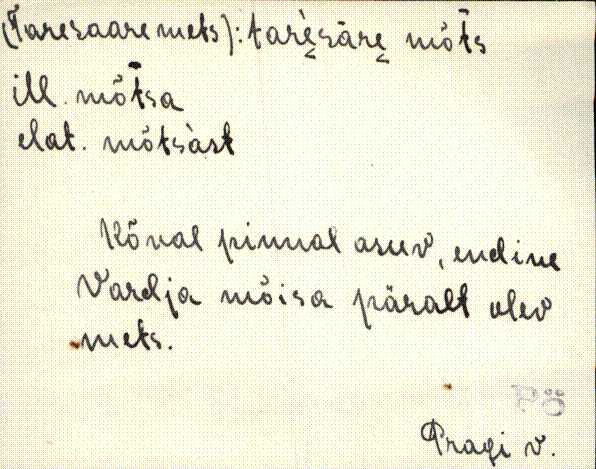 (Taresaare mets): tarè̬säre̬ mõt̄s
ill. mõt̄sa
elat. mõtsàst
Kõval pinnal asuv, endine
Vardja mõisa päralt olev
mets.
Põ
Pragi v.